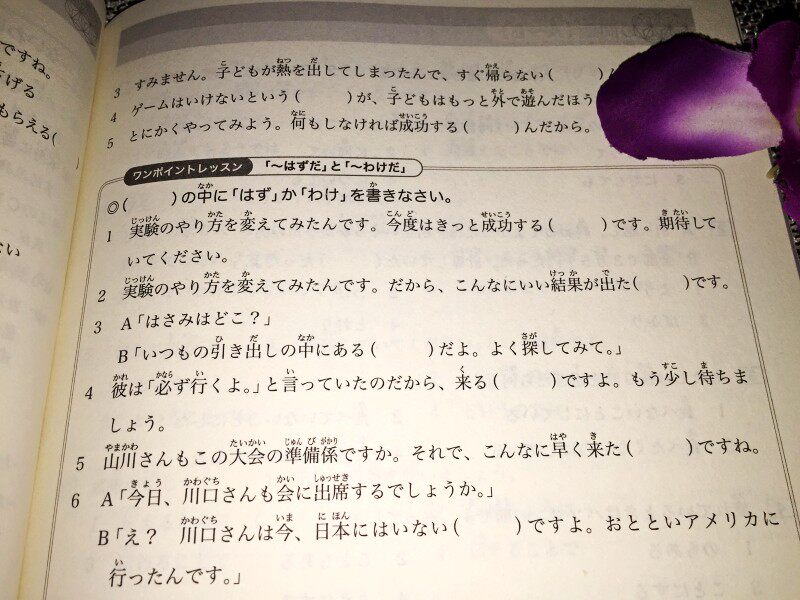 ですね。
げる
もらえる(
ない
3 すみません。子どもが熱を出してしまったんで、すぐ帰らない( )ん
4 ゲームはいけないという( )が、子どもはもっと外で遊んだほう
5 とにかくやってみよう。何もしなければ成功する( )んだから。
ワンポイントレッスン 「～はずだ」と「～わけだ」
◎( )の中に「はず」か「わけ」を書きなさい。
1 実験のやり方を変えてみたんです。今度はきっと成功する( )です。期待して
いてください。
2 実験のやり方を変えてみたんです。だから、こんなにいい結果が出た( )です。
3 A「はさみはどこ？」
B「いつもの引き出しの中にある( )だよ。よく探してみて。」
4 彼は「必ず行くよ。」と言っていたのだから、来る( )ですよ。もう少し待ちま
しょう。
5 山川さんもこの大会の準備係ですか。それで、こんなに早く来た( )ですね。
6 A「今日、川口さんも会に出席するでしょうか。」
B「え？ 川口さんは今、日本にはいない( )ですよ。おとといアメリカに
行ったんです。」